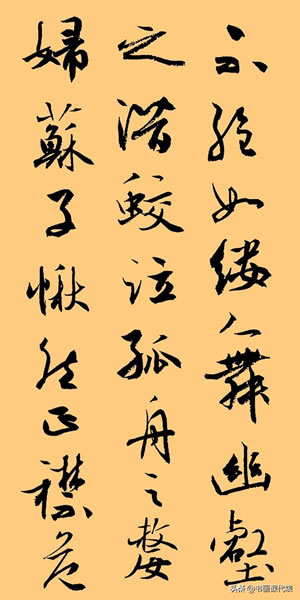 不絕如縷舞幽壑
之潛蛟泣孤舟之嫠
婦蘇子愀然正襟危
头条 @书画课代表